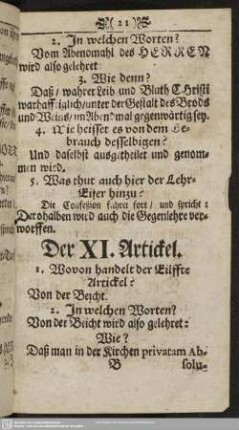 ( 21 )
2. In welchen Worten?
Vom Abendmahl des HERREN
wird also gelehret
3. Wie denn?
Daß / wahrer Leib und Bluth Christi
warhafftiglich / unter der Gestalt des Brods
und Weins / im Abendmal gegenwärtig sey.
4. Wie heisset es von dem Ge-
brauch desselbigen?
Und daselbst ausgetheilet und genom-
men wird.
5. Was thut auch hier der Lehr-
Eifer hinzu?
Die Confession fähret fort / und spricht:
Derohalben wird auch die Gegenlehre ver-
worffen.
Der XI. Artickel.
1. Wovon handelt der Eilffte
Artickel?
Von der Beicht.
2. In welchen Worten?
Von der Beicht wird also gelehret:
Wie?
Daß man in der Kirchen privatam Ab-
B solu-